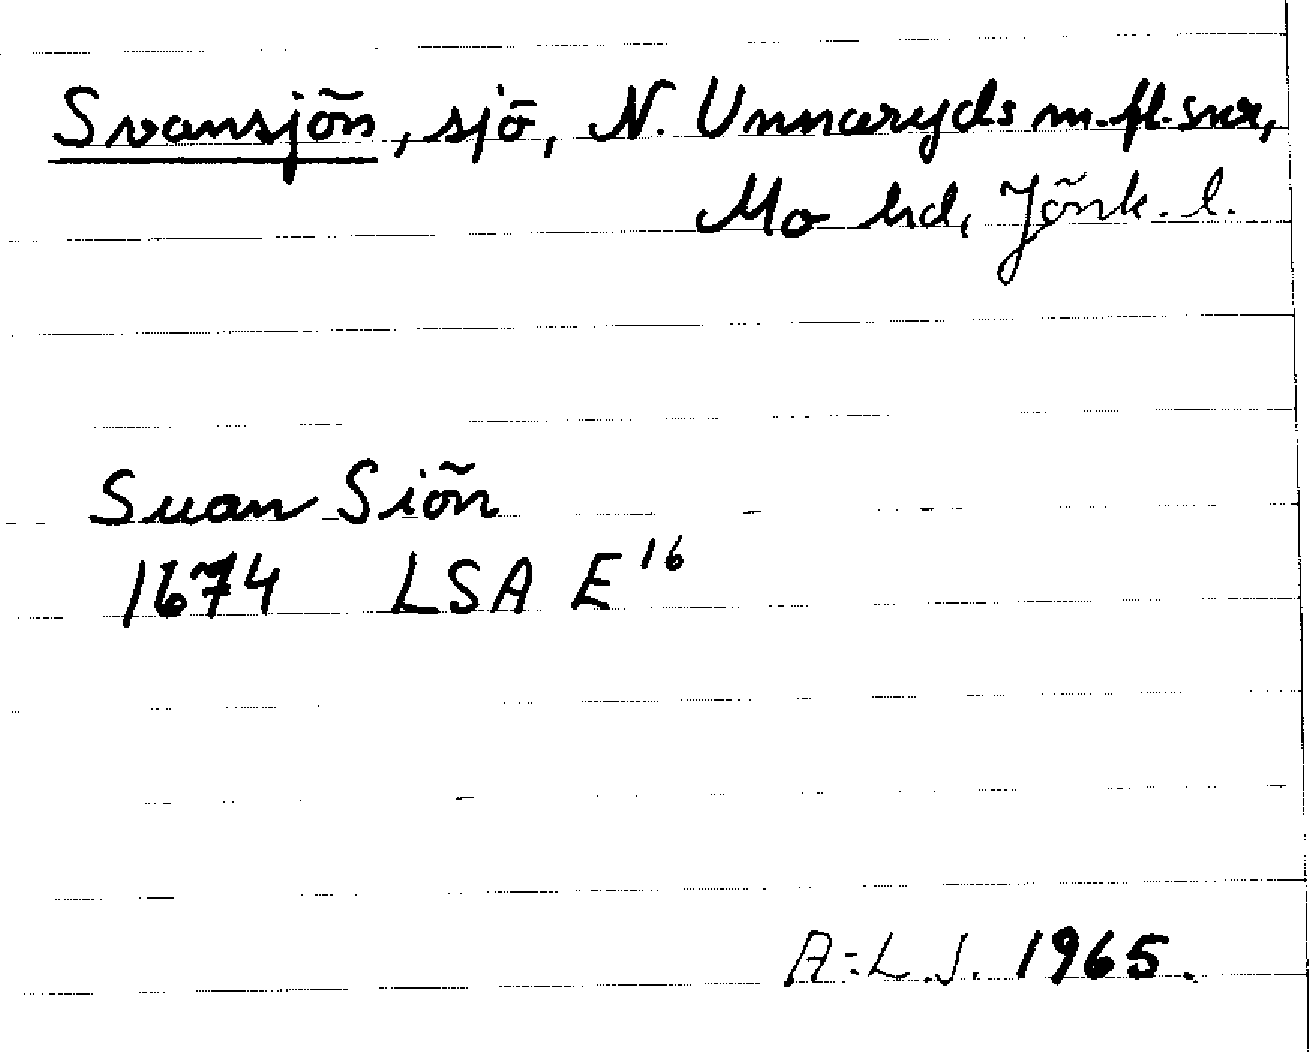 Svansjön, sjö, N. Unnaryds m.fl. snr,
Mo hd, Jönk. l.
Suan Siön
1674 LSA E 16
A-L.J. 1965.